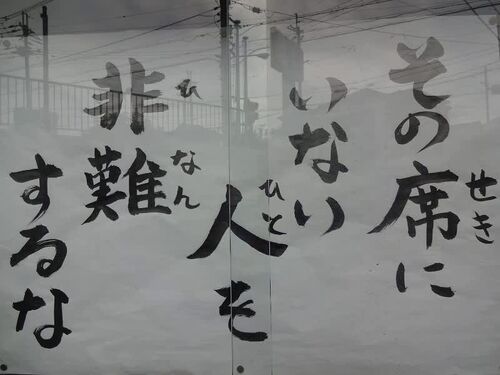 その席に
せき
いない
人を
ひと
非難
ひなん
するな